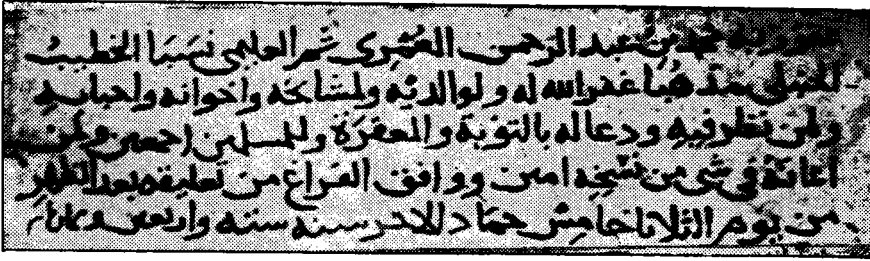 محمد بن عبد الرحمن العُمَرِى ثم العليمى نسَبًا الخطيبُ
الحنبلى مذهبًا غفر الله له ولوالديه ولمشايخه وأخوانه واحبابه
ولمن نظر فيه ودعا له بالتوبة والمغفرة وللمسلمين اجمعين ولمن
اعانه فى شى من نسخِه امين ووافق الفراغ من تعليقه بعد الظهر
من يوم الثلاثا خامس جماد الاخر سنه ستة واربعين وثمانماية